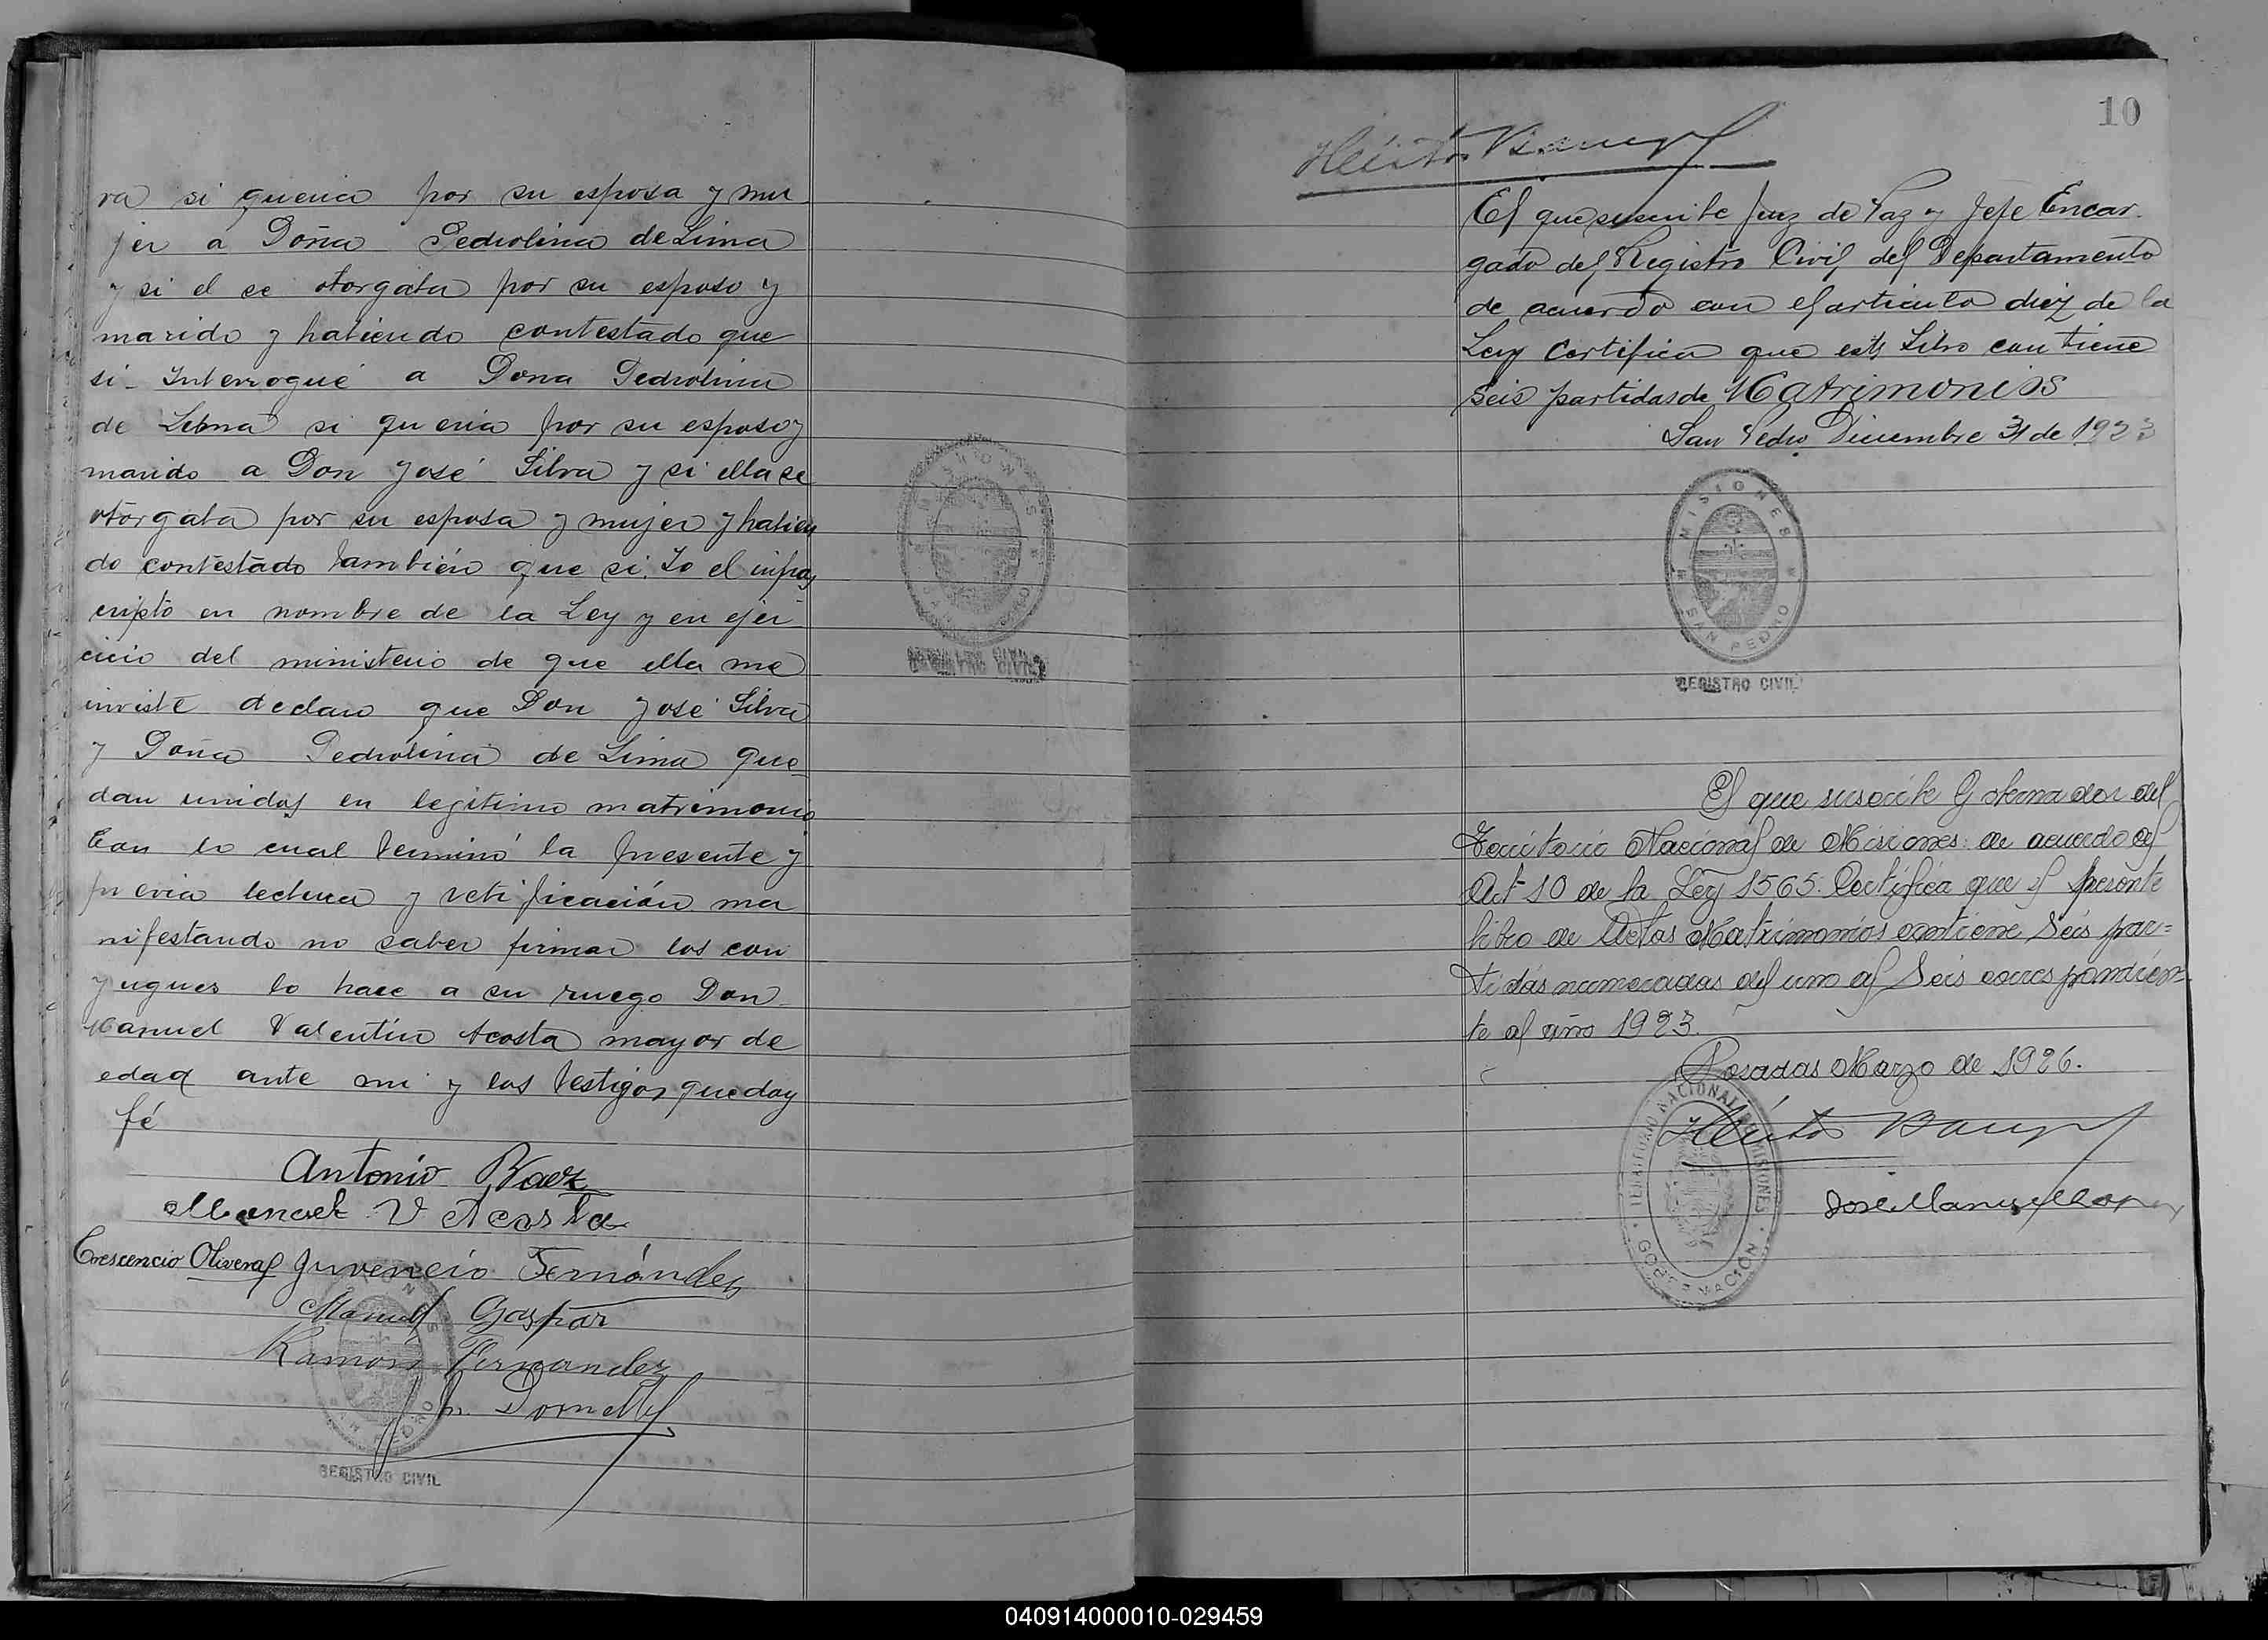 ra si queria por su esposa y mu
jer a Doña Pedrolina de Lima
y si el se otorgaba por su esposo y
marido y habiendo contestado que
si - Interrogué a Dona Pedrolina
de Lima si queria por su esposo y
marido a Don José Silva y si ella se
otorgaba por su esposa y mujer y habien
do contestado también que si. Yo el infras
cripto en nombre de la Ley y en ejer
cicio del ministerio de que ella me
inviste declaro que Don José Silva
y Doña Pedrolina de Lima que-
dan unidos en legitimo matrimonio
Con lo cual terminó la presente y
previa lectura y retificación ma
nifestando no saber firmar los con
yugues lo hace a su ruego Don
Manuel Valentin Acosta mayor de
edad ante mi y los testigos que doy
fé
Antonio Baez
Manuel V Acosta
Crescencio Olivera Juvencio Fernández
Manuel Gaspar
Ramón Fernandez
MISIONES
SAN PEDRO
REGISTRO CIVIL
MISIONES
SAN PEDRO
REGISTRO CIVIL
10
El que suscribe Juez de Paz y Jefe Encar
gado del Registro Civil del Departamento
de acuerdo con el articulo diez de la
Ley Certifica que este Libro contiene
seis partidas de Matrimonios
San Pedro Diciembre 31 de 1923
MISIONES
SAN PEDRO
REGISTRO CIVIL
El que suscribe Gobernador del
Territorio Nacional de Misiones: de acuerdo al
Art 10 de la Ley 1565: Certifica que el presente
libro de Actas Matrimonios contiene Seis par=
tidas numeradas del uno al Seis correspondien=
te al año 1923.
Posadas Marzo de 1926.
TERRITORIO NACIONAL DE MISIONES
GOBERNACION
040914000010-029459